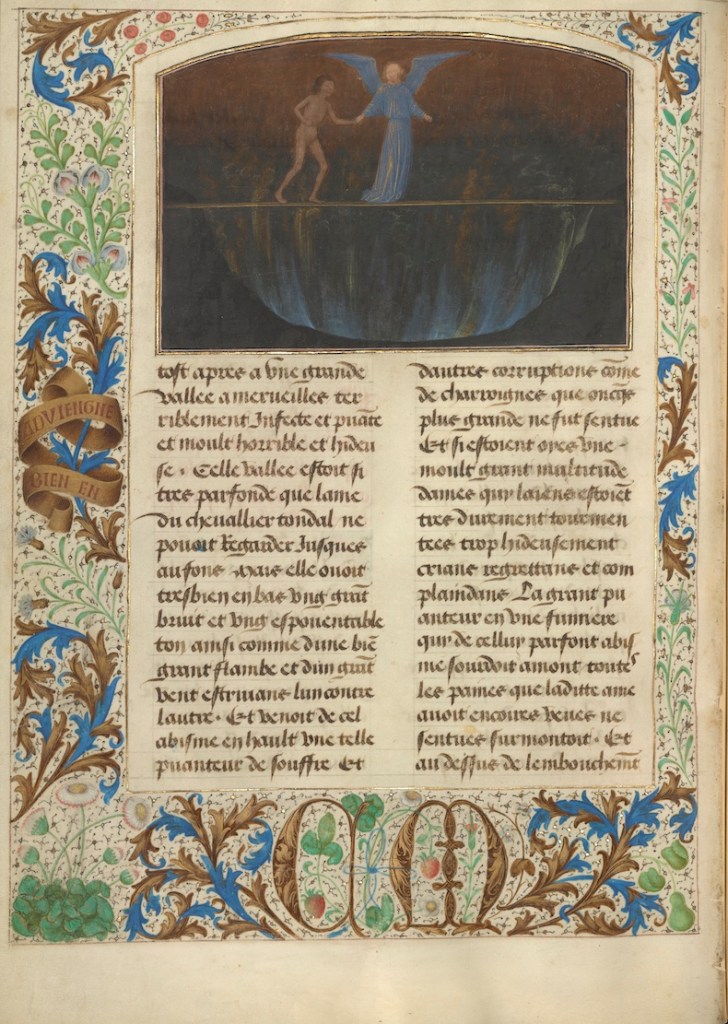 tost apres a vne grande
vallee a merueilles ter
riblement Infecte et puāte
et moult horrible et hideu
se . Celle vallee estoit si
tres parfonde que lame
du cheuallier tondal ne
pouoit Regarder Jusques
au fons Mais elle ouoit
tresbien en bas vng grāt
bruit et vng espouentable
ton ainsi comme dune biē
grant flambe et dun grāt
vent estriuans lun contre
lautre . Et venoit de cel
abisme en hault vne telle
puanteur de souffre Et
dautres corruptions cōme
de charoignes que oncq̄s
plus grande ne fut sentue
Et si estoient oyes vne
moult grant multitude
dames quy laiens estoiēt
tres durement tourmen
tees trop hideusement
crians regrettans et com
plaindans La grant pu
anteur en vne fumiere
quy de celluy parfont abis
me souddoit amont toutes
les paines que laditte ame
auoit encoires veues ne
sentues surmontoit . Et
au dessus de lembouchemt̄
ADVIENGNE
BIEN EN
C M